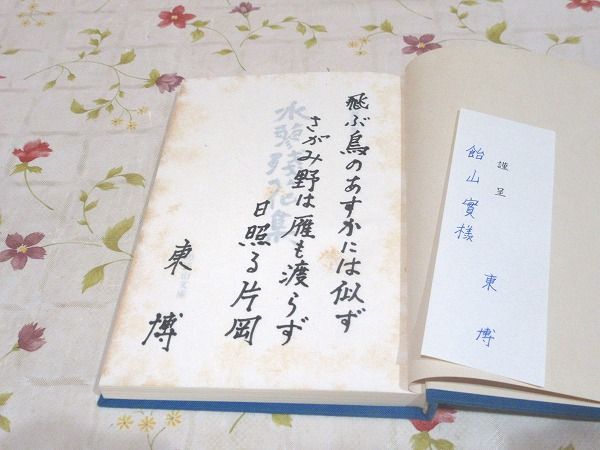 謹呈
飴山實様
東博
飛ぶ鳥のあすかには似ず
さがみ野は雁も渡らず
日照る片岡
東博